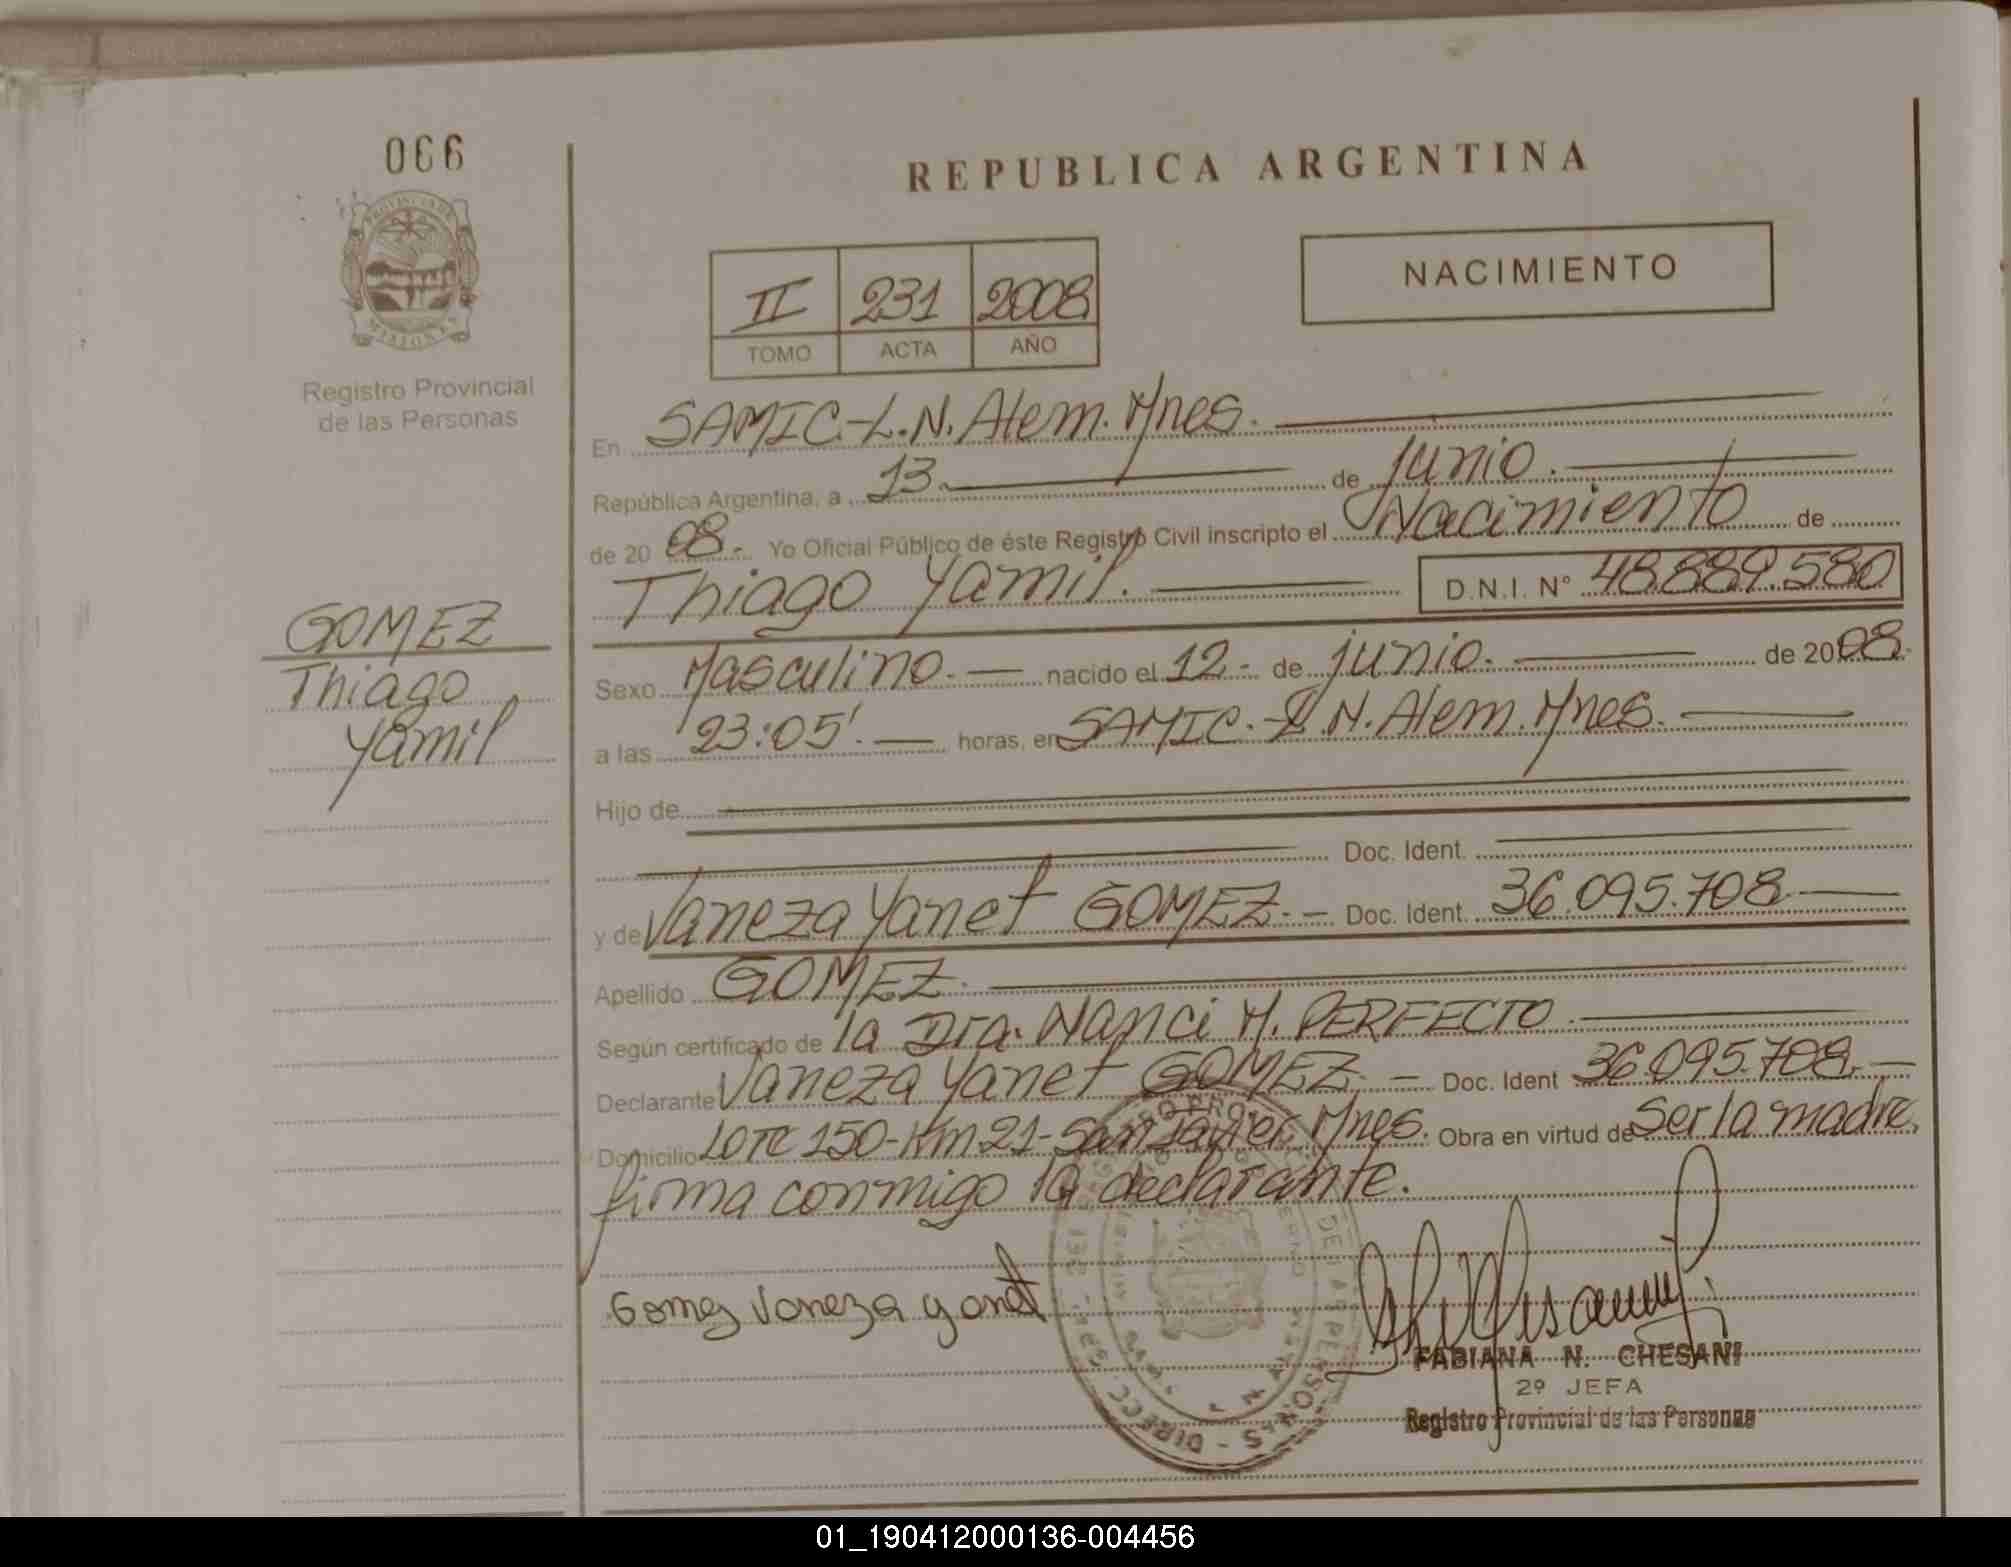 066
REPUBLICA ARGENTINA
NACIMIENTO
II 231 2008
TOMO ACTA AÑO
PROVINCIA DE
MISIONES
Registro Provincial
de las Personas
En SAMIC.-L.N. Alem. Mnes.
República Argentina, a 13. de junio.
de 20 08.- Yo Oficial Público de éste Registro Civil inscripto el Nacimiento de
Thiago Yamil. D.N.I. Nº 48.889.580
GOMEZ
Thiago
Yamil
Sexo Masculino.- nacido el 12.- de junio. de 2008.-
a las 23:05'.- horas, en SAMIC.-L.N. Alem. Mnes.
Hijo de
Doc. Ident.
y de Vaneza Yanet GOMEZ.- Doc. Ident. 36.095.708.
Apellido GOMEZ.
Según certificado de la Dra. Nanci M. PERFECTO.
Declarante Vaneza Yanet GOMEZ.- Doc. Ident 36.095.708.-
Domicilio LOTE 150-Km.21-San Javier, Mnes. Obra en virtud de Ser la madre,
firma conmigo la declarante.
Gomez Vaneza yanet
FABIANA N. CHESANI
2º JEFA
Registro Provincial de las Personas
01_190412000136-004456